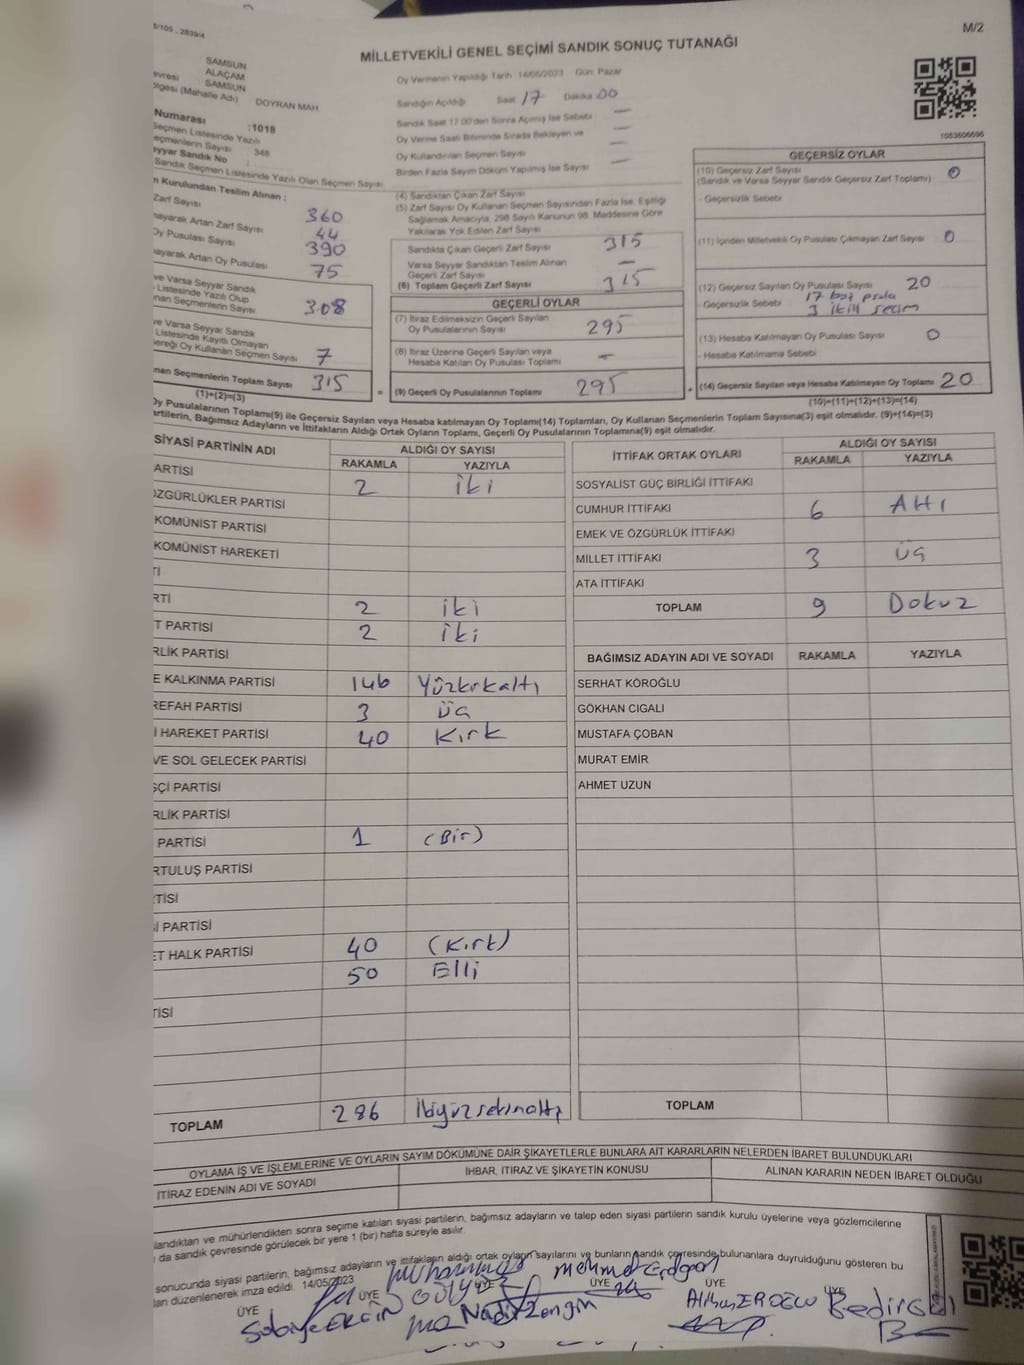 M/2
MİLLETVEKİLİ GENEL SEÇİMİ SANDIK SONUÇ TUTANAĞI
SAMSUN
ALAÇAM
SAMSUN
(Mahalle Adı) DOYRAN MAH
Numarası :1018
Seçmen Listesinde Yazılı
Seçmenlerin Sayısı : 348
Sandık No :
Sandık Seçmen Listesinde Yazılı Olan Seçmen Sayısı
Oy Vermenin Yapıldığı Tarih 14/05/2023 Gün: Pazar
Sandığın Açıldığı Saat 17 Dakika 00
Sandık Saat 17:00'den Sonra Açılmış İse Sebebi —
Oy Verme Saati Bitiminde Sırada Bekleyen ve —
Oy Kullandırılan Seçmen Sayısı
Birden Fazla Sayım Döküm Yapılmış İse Sayısı —
1083606696
n Kurulundan Teslim Alınan ;
Zarf Sayısı 360
ayarak Artan Zarf Sayısı 44
Oy Pusulası Sayısı 390
ayarak Artan Oy Pusulası 75
ve Varsa Seyyar Sandık
Listesinde Yazılı Olup
nan Seçmenlerin Sayısı 308
ve Varsa Seyyar Sandık
Listesinde Kayıtlı Olmayan
ereği Oy Kullanan Seçmen Sayısı 7
nan Seçmenlerin Toplam Sayısı 315
(1)+(2)=(3)
(4) Sandıktan Çıkan Zarf Sayısı
(5) Zarf Sayısı Oy Kullanan Seçmen Sayısından Fazla İse, Eşitliği
Sağlamak Amacıyla, 298 Sayılı Kanunun 98. Maddesine Göre
Yakılarak Yok Edilen Zarf Sayısı
Sandıkta Çıkan Geçerli Zarf Sayısı 315
Varsa Seyyar Sandıktan Teslim Alınan
Geçerli Zarf Sayısı —
(6) Toplam Geçerli Zarf Sayısı 315
GEÇERLİ OYLAR
(7) İtiraz Edilmeksizin Geçerli Sayılan
Oy Pusulalarının Sayısı 295
(8) İtiraz Üzerine Geçerli Sayılan veya
Hesaba Katılan Oy Pusulası Toplamı —
= (9) Geçerli Oy Pusulalarının Toplamı 295
GEÇERSİZ OYLAR
(10) Geçersiz Zarf Sayısı 0
(Sandık ve Varsa Seyyar Sandık Geçersiz Zarf Toplamı)
- Geçersizlik Sebebi
(11) İçinden Milletvekili Oy Pusulası Çıkmayan Zarf Sayısı 0
(12) Geçersiz Sayılan Oy Pusulası Sayısı 20
- Geçersizlik Sebebi 17 boş
3
(13) Hesaba Katılmayan Oy Pusulası Sayısı 0
- Hesaba Katılmama Sebebi
+ (14) Geçersiz Sayılan veya Hesaba Katılmayan Oy Toplamı 20
(10)+(11)+(12)+(13)=(14)
Oy Pusulalarının Toplamı(9) ile Geçersiz Sayılan veya Hesaba katılmayan Oy Toplamı(14) Toplamları, Oy Kullanan Seçmenlerin Toplam Sayısına(3) eşit olmalıdır. (9)+(14)=(3)
artilerin, Bağımsız Adayların ve İttifakların Aldığı Ortak Oyların Toplamı, Geçerli Oy Pusulalarının Toplamına(9) eşit olmalıdır.
SİYASİ PARTİNİN ADI ALDIĞI OY SAYISI
RAKAMLA YAZIYLA
ARTİSİ 2 iki
ÖZGÜRLÜKLER PARTİSİ
KOMÜNİST PARTİSİ
KOMÜNİST HAREKETİ
Tİ
RTİ 2 iki
T PARTİSİ 2 iki
RLİK PARTİSİ
E KALKINMA PARTİSİ 146 Yüzkırkaltı
REFAH PARTİSİ 3 üç
İ HAREKET PARTİSİ 40 Kırk
VE SOL GELECEK PARTİSİ
ŞÇİ PARTİSİ
RLİK PARTİSİ
PARTİSİ 1 (Bir)
RTULUŞ PARTİSİ
TİSİ
İ PARTİSİ
ET HALK PARTİSİ 40 (Kırk)
50 Elli
TİSİ
TOPLAM 286 İkiyüzseksenaltı
İTTİFAK ORTAK OYLARI ALDIĞI OY SAYISI
RAKAMLA YAZIYLA
SOSYALİST GÜÇ BİRLİĞİ İTTİFAKI
CUMHUR İTTİFAKI 6 Altı
EMEK VE ÖZGÜRLÜK İTTİFAKI
MİLLET İTTİFAKI 3 üç
ATA İTTİFAKI
TOPLAM 9 Dokuz
BAĞIMSIZ ADAYIN ADI VE SOYADI RAKAMLA YAZIYLA
SERHAT KÖROĞLU
GÖKHAN CIGALI
MUSTAFA ÇOBAN
MURAT EMİR
AHMET UZUN
TOPLAM
OYLAMA İŞ VE İŞLEMLERİNE VE OYLARIN SAYIM DÖKÜMÜNE DAİR ŞİKAYETLERLE BUNLARA AİT KARARLARIN NELERDEN İBARET BULUNDUKLARI
İTİRAZ EDENİN ADI VE SOYADI İHBAR, İTİRAZ VE ŞİKAYETİN KONUSU ALINAN KARARIN NEDEN İBARET OLDUĞU
landıktan ve mühürlendikten sonra seçime katılan siyasi partilerin, bağımsız adayların ve talep eden siyasi partilerin sandık kurulu üyelerine veya gözlemcilerine
da sandık çevresinde görülecek bir yere 1 (bir) hafta süreyle asılır.
sonucunda siyasi partilerin, bağımsız adayların ve ittifakların aldığı ortak oyların sayılarını ve bunların sandık çevresinde bulunanlara duyrulduğunu gösteren bu
lan düzenlenerek imza edildi. 14/05/2023
ÜYE ÜYE ÜYE ÜYE ÜYE ÜYE
Mehmet Erdoğan
Nadir Zengin